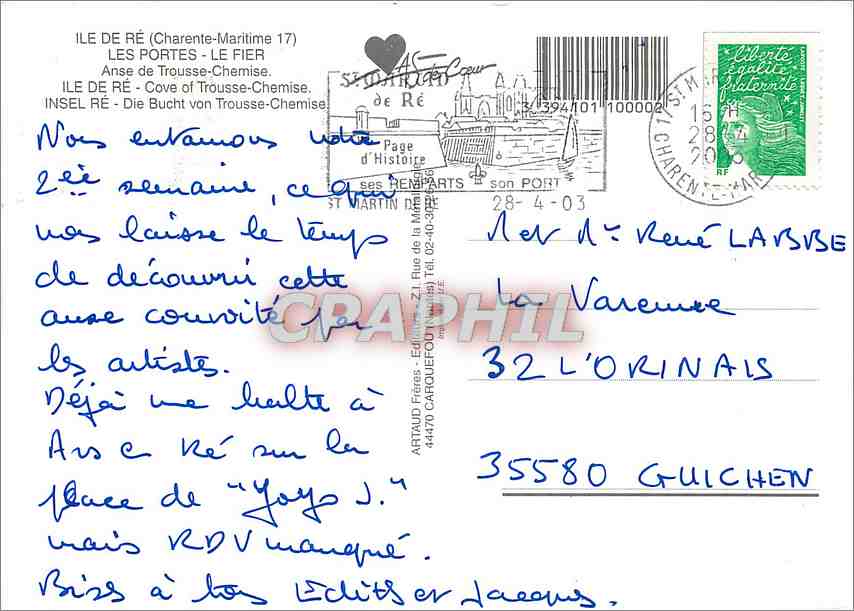 ILE DE RÉ (Charente-Maritime 17)
LES PORTES - LE FIER
Anse de Trousse-Chemise.
ILE DE RÉ - Cove of Trousse-Chemise.
INSEL RÉ - Die Bucht von Trousse-Chemise.
de Ré
Page
d'Histoire
ses REMPARTS son PORT
ST MARTIN DE RE 28-4-03
3 394101 100002
liberté
égalité
fraternité
RF
16 H
28 4
CHARENTE-MAR
Nous entamons notre
2è semaine, ce qui
nous laisse le temps
de découvrir cette
anse convoitée par
les artistes.
Déjà une halte à
Ars en Ré sur la
place de "Yoyo J."
mais RDV manqué.
Bises à tous Edith et Jacques.
ARTAUD Frères - Editeurs - Z.I. Rue de la Métallurgie
44470 CARQUEFOU (Nantes) Tél. 02-40-30
CPAPHIL
M et Mme René LABBE
La Varenne
32 L'ORINAIS
35580 GUICHEN